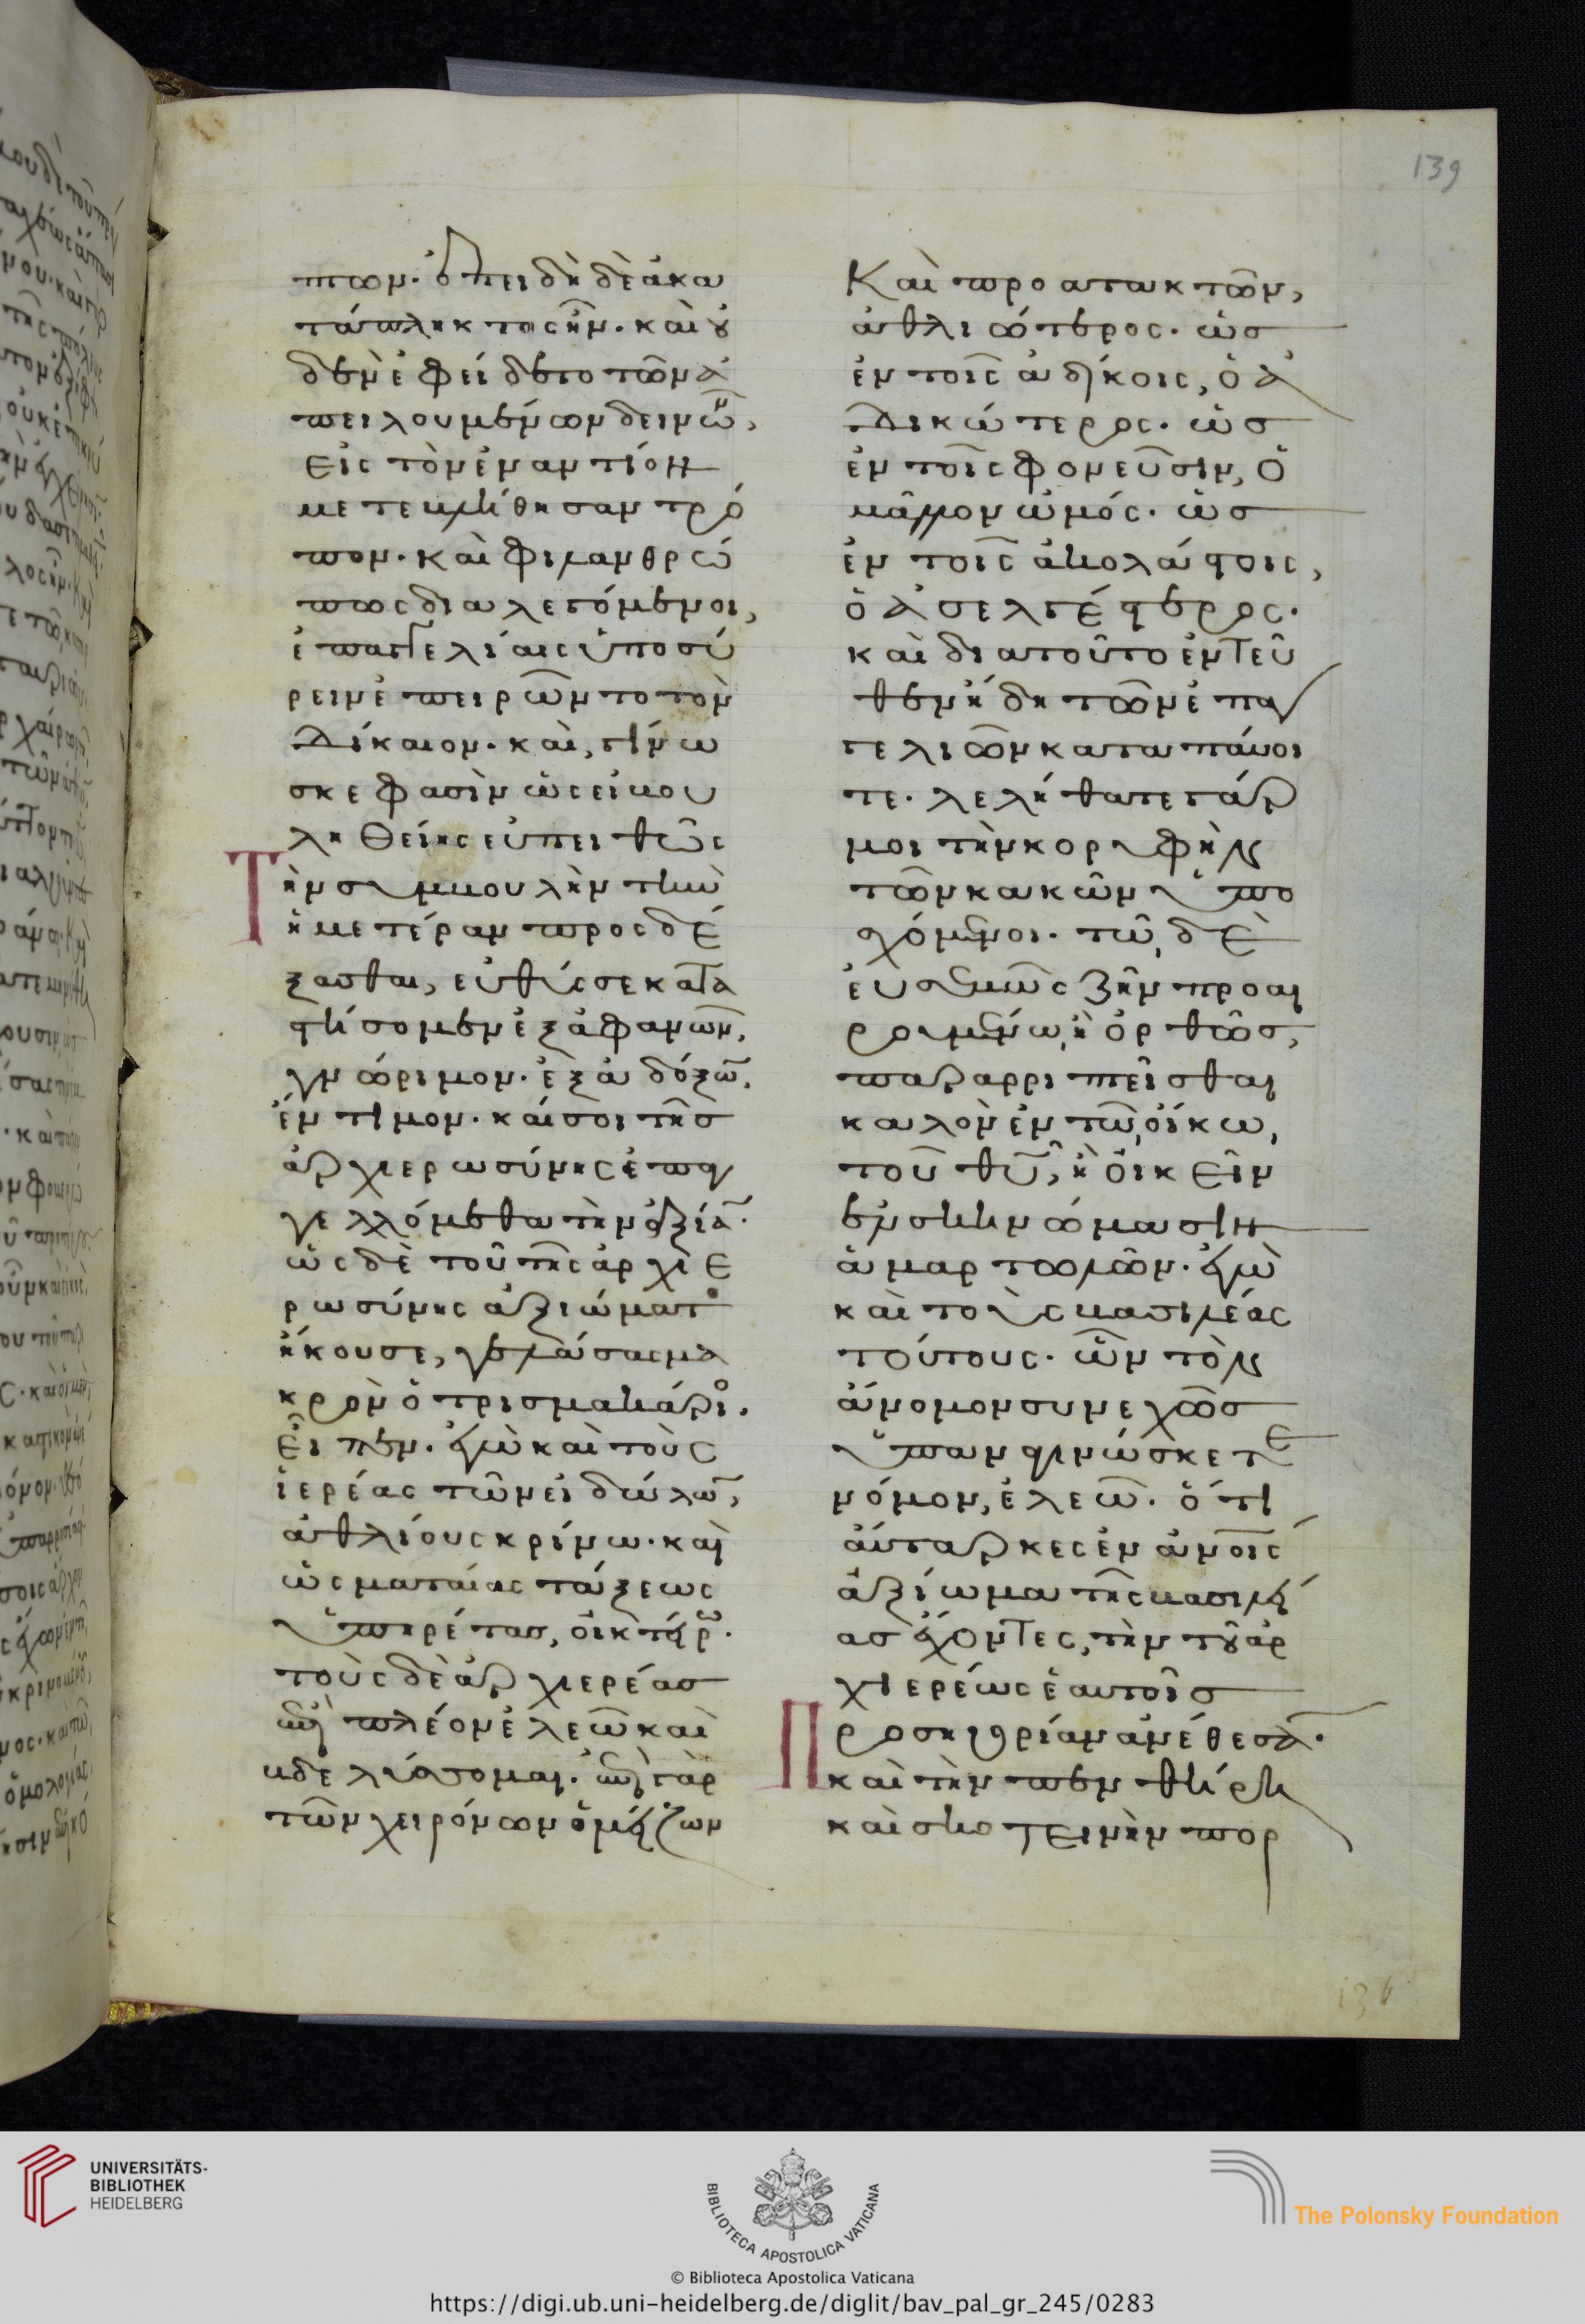 139
πτων· ἐπειδὴ δὲ ἀκα
τάπληκτος ἦν· καὶ οὐ
δὲν ἐφείδετο τῶν ἀ
πειλουμένων δεινῶν,
εἰς τὸν ἐναντίον
μετεβλήθησαν τρό
πον· καὶ φιλανθρώ
πως διαλεγόμενοι,
ἐπαγγελίαις ὑποσύ
ρειν ἐπειρῶντο τὸν
δίκαιον· καὶ, γίνω
σκε φασὶν ὡς εἰ βου
ληθείης εὐπειθῶς
τὴν συμβουλὴν τὴν
ἡμετέραν προσδέ
ξασθαι, εὐθύς σε κατα
στήσομεν ἐξ ἀφανῶν,
γνώριμον· ἐξ ἀδόξων,
ἔντιμον· καί σοι τῆσ
ἀρχιερωσύνης ἐπαγ
γελλόμεθα τὴν ἀξίαν·
ὡς δὲ τοῦ τῆς ἀρχιε
ρωσύνης ἀξιώματος
ἤκουσε, γελάσας μα
κρὸν ὁ τρισμακάριος·
εἶπεν· ἐγὼ καὶ τοὺς
ἱερέας τῶν εἰδώλων,
ἀθλίους κρίνω· καὶ
ὡς ματαίας τάξεως
ὑπηρέτας, οἰκτείρω·
τοὺς δὲ ἀρχιερέασ
ἔτι πλέον ἐλεῶ καὶ
βδελύσσομαι· ἐπεὶ γὰρ
τῶν χειρόνων ὁ μείζων
Καὶ προατακτῶν,
ἀθλιώτερος· ὡσ
ἐν τοῖς ἀδίκοις, ὁ ἀ
δικώτερος· ὡσ
ἐν τοῖς φονεῦσιν, ὁ
μᾶλλον ὠμός· ὡσ
ἐν τοῖς ἀκολάστοις,
ὁ ἀσελγέστερος·
καὶ διατοῦτο ἐντεῦ
θεν ἤδη τῶν ἐπαγ
γελιῶν καταπάυσα
τε· λελήθατε γάρ
μοι τὴν κορυφὴν
τῶν κακῶν ὑπο
σχόμενοι· τῷ δὲ
εὐσεβῶς ζῆν προαι
ρουμένω, ἢ ὀρθῶσ,
παραρριπτεῖσθαι
καλὸν ἐν τῶ οἴκω,
τοῦ θυ, ἢ οἰκεῖν
ἐν σκηνώμασιν
ἁμαρτωλῶν· ἐγὼ
καὶ τοὺς βασιλέας
τούτους· ὧν τὸν
ἄνομον συνεχῶσ
ὑπαναγινώσκετε
νόμον, ἐλεῶ· ὅτι
ἀύταρκες ἐν αὐτοῖς
ἀξίωμα τῆς βασιλεί
ασ ἔχοντες, τὴν τοῦ ἀρ
χιερέως ἑαυτοῖσ
προσηγορίαν ἀνέθεσαν·
καὶ τὴν πενθήρη
καὶ σκοτεινὴν πορ
136
UNIVERSITÄTS-
BIBLIOTHEK
HEIDELBERG
BIBLIOTECA APOSTOLICA VATICANA
The Polonsky Foundation
© Biblioteca Apostolica Vaticana
https://digi.ub.uni-heidelberg.de/diglit/bav_pal_gr_245/0283